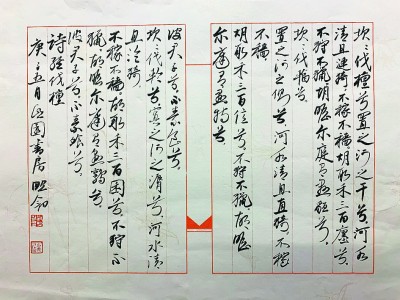 坎坎伐檀兮置之河之干兮河水
清且涟猗不稼不穑胡取禾三百廛兮
不狩不猎胡瞻尔庭有县貆兮
坎坎伐辐兮
置之河之侧兮河水清且直猗不稼
不穑
胡取禾三百億兮不狩不猎胡瞻
尔庭有县特兮
彼君子兮不素食兮
坎坎伐轮兮寘之河之漘兮河水清
且沦猗
不稼不穑胡取禾三百囷兮不狩不
猎胡瞻尔庭有县鹑兮
彼君子兮不素飧兮
诗经伐檀
庚子五月园书房